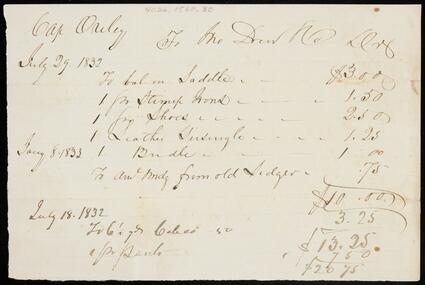 4026.1560.30
Cap Oxiley
To Jno Drew & Co Dr
July 29 1832
To bal on Saddle $3.00
1 pr Stirrup Irons 1.50
1 pr Shoes 2.50
1 Leather Sirsingle 1.25
Jany 8. 1833 1 Bridle 1.00
To amt Mdz from old Ledger .75
$10.00
July 18. 1832 3.25
To 6½ yds Calico 50
$13.25
1 pr pants 7 50
$20 75